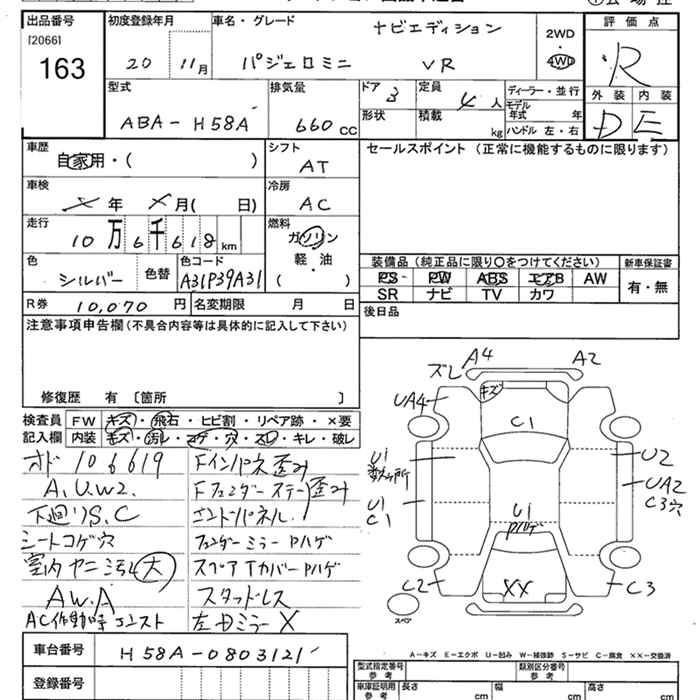 出品番号
[2066]
163
初度登録年月
20 11月
車名・グレード
ナビエディション
パジェロミニ VR
2WD
・
4WD
評価点
R
外装 内装
D E
型式
ABA-H58A
排気量
660 cc
ドア
3
定員
4 人
形状
積載
kg
ディーラー・並行
モデル年式 年
ハンドル 左・右
車歴
自家用・( )
シフト
AT
車検
年 月( 日)
冷房
AC
走行
10万6千618km
燃料
ガソリン
軽・油
( )
色
シルバー
色替
色コード
A31P39A31
R券 10,070 円
名変期限 月 日
セールスポイント(正常に機能するものに限ります)
装備品(純正品に限り〇をつけてください)
新車保証書
PS PW ABS エアB AW
SR ナビ TV カワ
有・無
後日品
注意事項申告欄(不具合内容等は具体的に記入して下さい)
修復歴 有 〔箇所 〕
検査員記入欄
FW キズ・飛石・ヒビ割・リペア跡・×要
内装 キズ・汚レ・コゲ・穴・スレ・キレ・破レ
オド 106619
A.U.W2.
下廻りS.C
シートコゲ穴
室内ヤニ汚レ大
AW.A
AC作動時エンスト
Fインパネ歪み
Fフェンダーステー歪み
エンドパネル.
フェンダーミラーPハゲ
スペアTカバーPハゲ
スタッドレス
左Dミラー X
ズレ A4 A2
キズ
UA4
C1
U1
数ヶ所
U2
UA2
C3穴
U1
C1
U1
Pハゲ
C2
XX
C3
スペア
A-キズ E-エクボ U-凹み W-補修跡 S-サビ C-腐食 XX-交換済
車台番号
H58A-0803121
登録番号
型式指定番号
参考
類別区分番号
参考
車庫証明用
参考
長さ cm
幅 cm
高さ cm